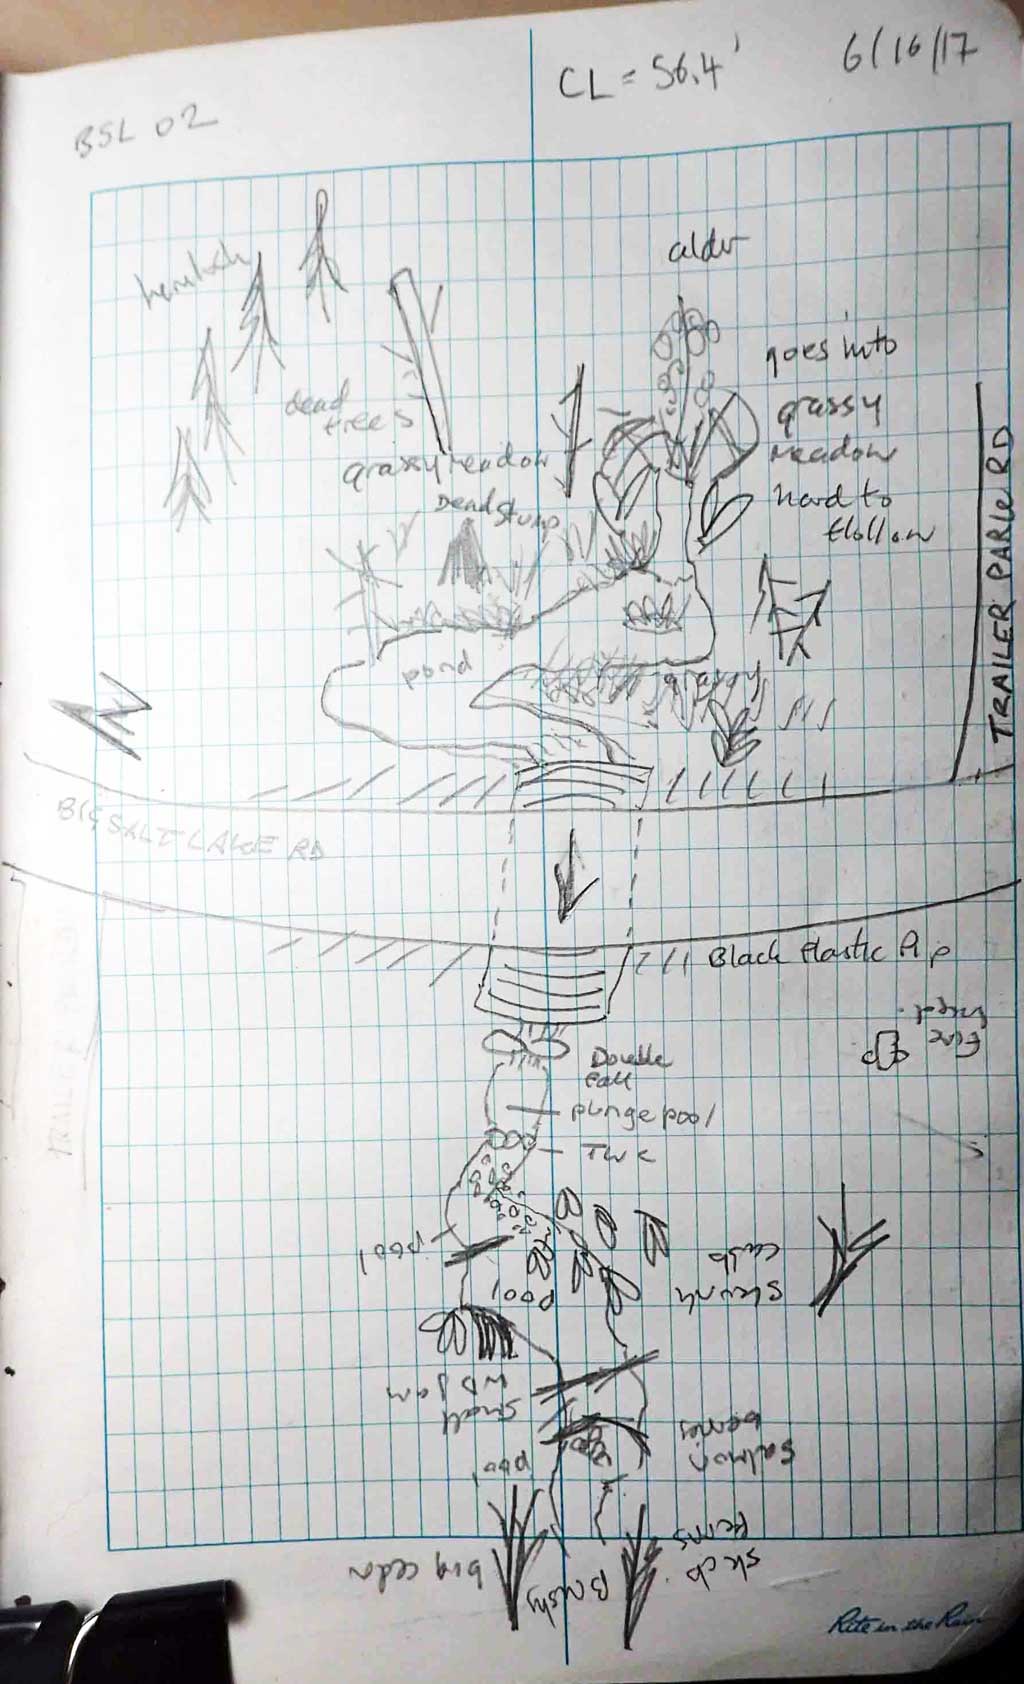 BSL 02
CL = 56.4'
6/16/17
hemlock
alder
dead
trees
goes into
grassy
meadow
hard to
fllow
grassy meadow
Dead Stump
pond
grassy
TRAILER PARK RD
BIG SALT LAKE RD
Black Plastic Pip
Double
fall
plunge pool
TWC
pool
pool
skunk
cabb
small
WD Jam
salmon
berries
pool
big cedar
Brushy
ferns
Rite in the Rain